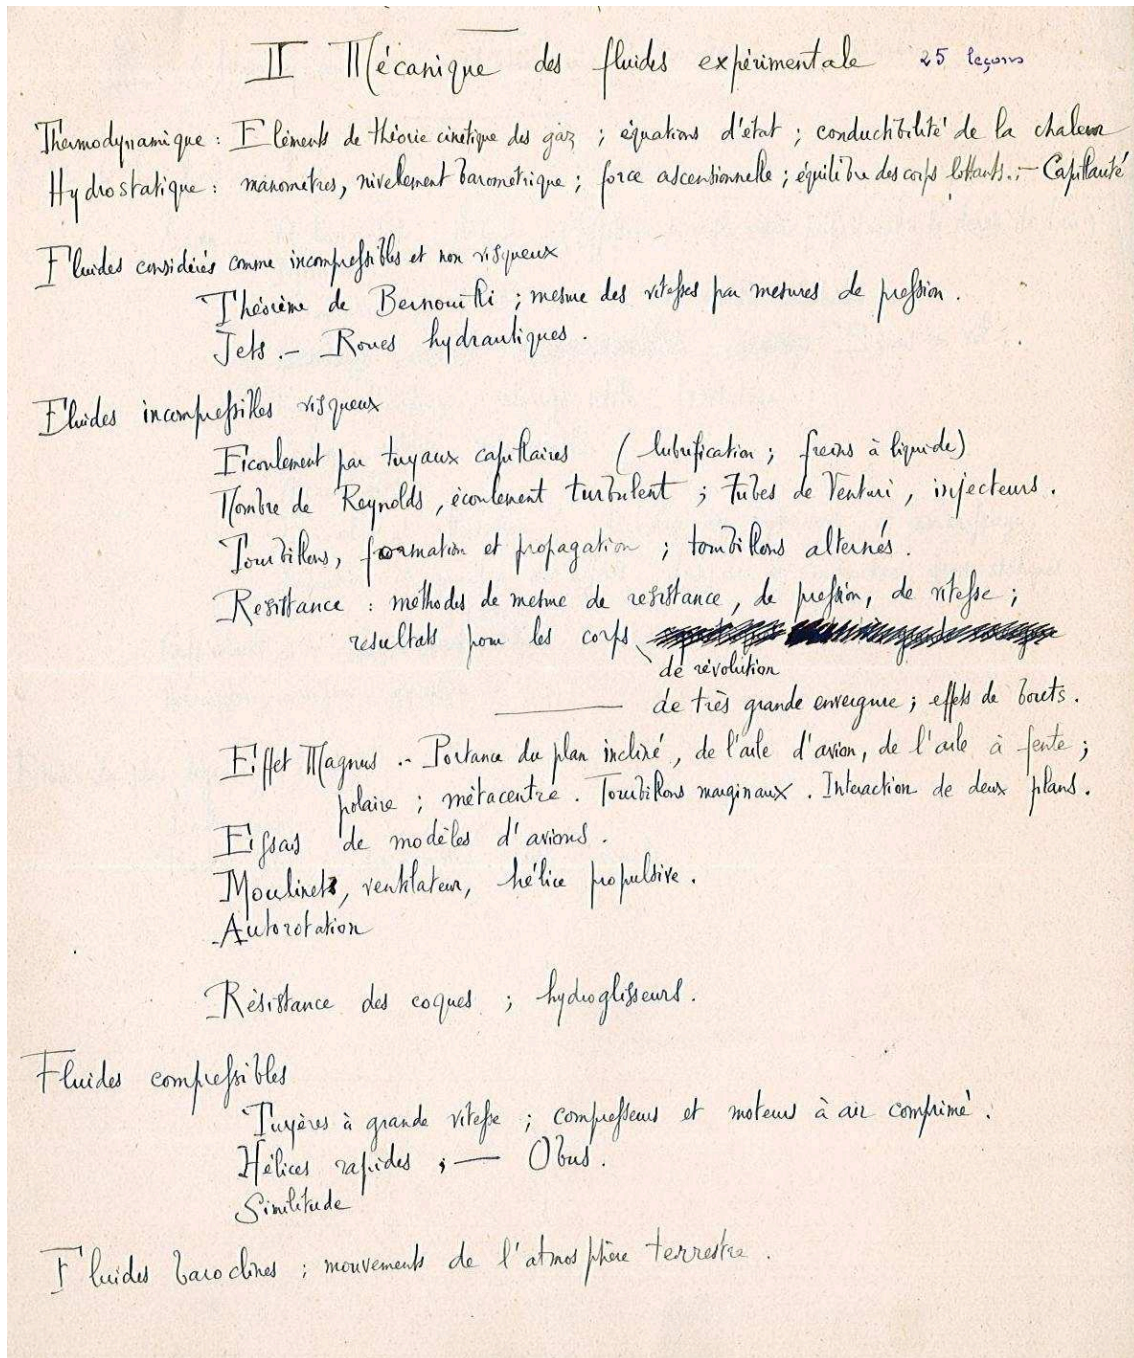 II Mécanique des fluides expérimentale 25 leçons
Thermodynamique : Eléments de théorie cinétique des gaz ; équations d'état ; conductibilité de la chaleur
Hydrostatique : manomètres, nivellement barométrique ; force ascensionnelle ; équilibre des corps flottants. ; — Capillarité
Fluides considérés comme incompressibles et non visqueux
Théorème de Bernouilli ; mesure des vitesses par mesures de pression .
Jets . — Roues hydrauliques .
Fluides incompressibles visqueux
Ecoulement par tuyaux capillaires ( lubrification ; freins à liquide )
Nombre de Reynolds , écoulement turbulent ; Tubes de Venturi , injecteurs .
Tourbillons, formation et propagation ; tourbillons alternés .
Resistance : méthodes de mesure de resistance, de pression, de vitesse ;
resultats pour les corps
de révolution
——— de très grande envergure ; effets de bouts .
Effet Magnus .- Portance du plan incliné , de l'aile d'avion, de l'aile à fente ;
polaire ; métacentre . Tourbillons marginaux . Interaction de deux plans .
Essais de modèles d'avions .
Moulinets, ventilateur, hélice propulsive .
Autorotation
Résistance des coques ; hydroglisseurs .
Fluides compressibles
Tuyères à grande vitesse ; compresseurs et moteurs à air comprimé .
Hélices rapides ; — Obus .
Similitude
Fluides baroclines ; mouvements de l'atmosphère terrestre .